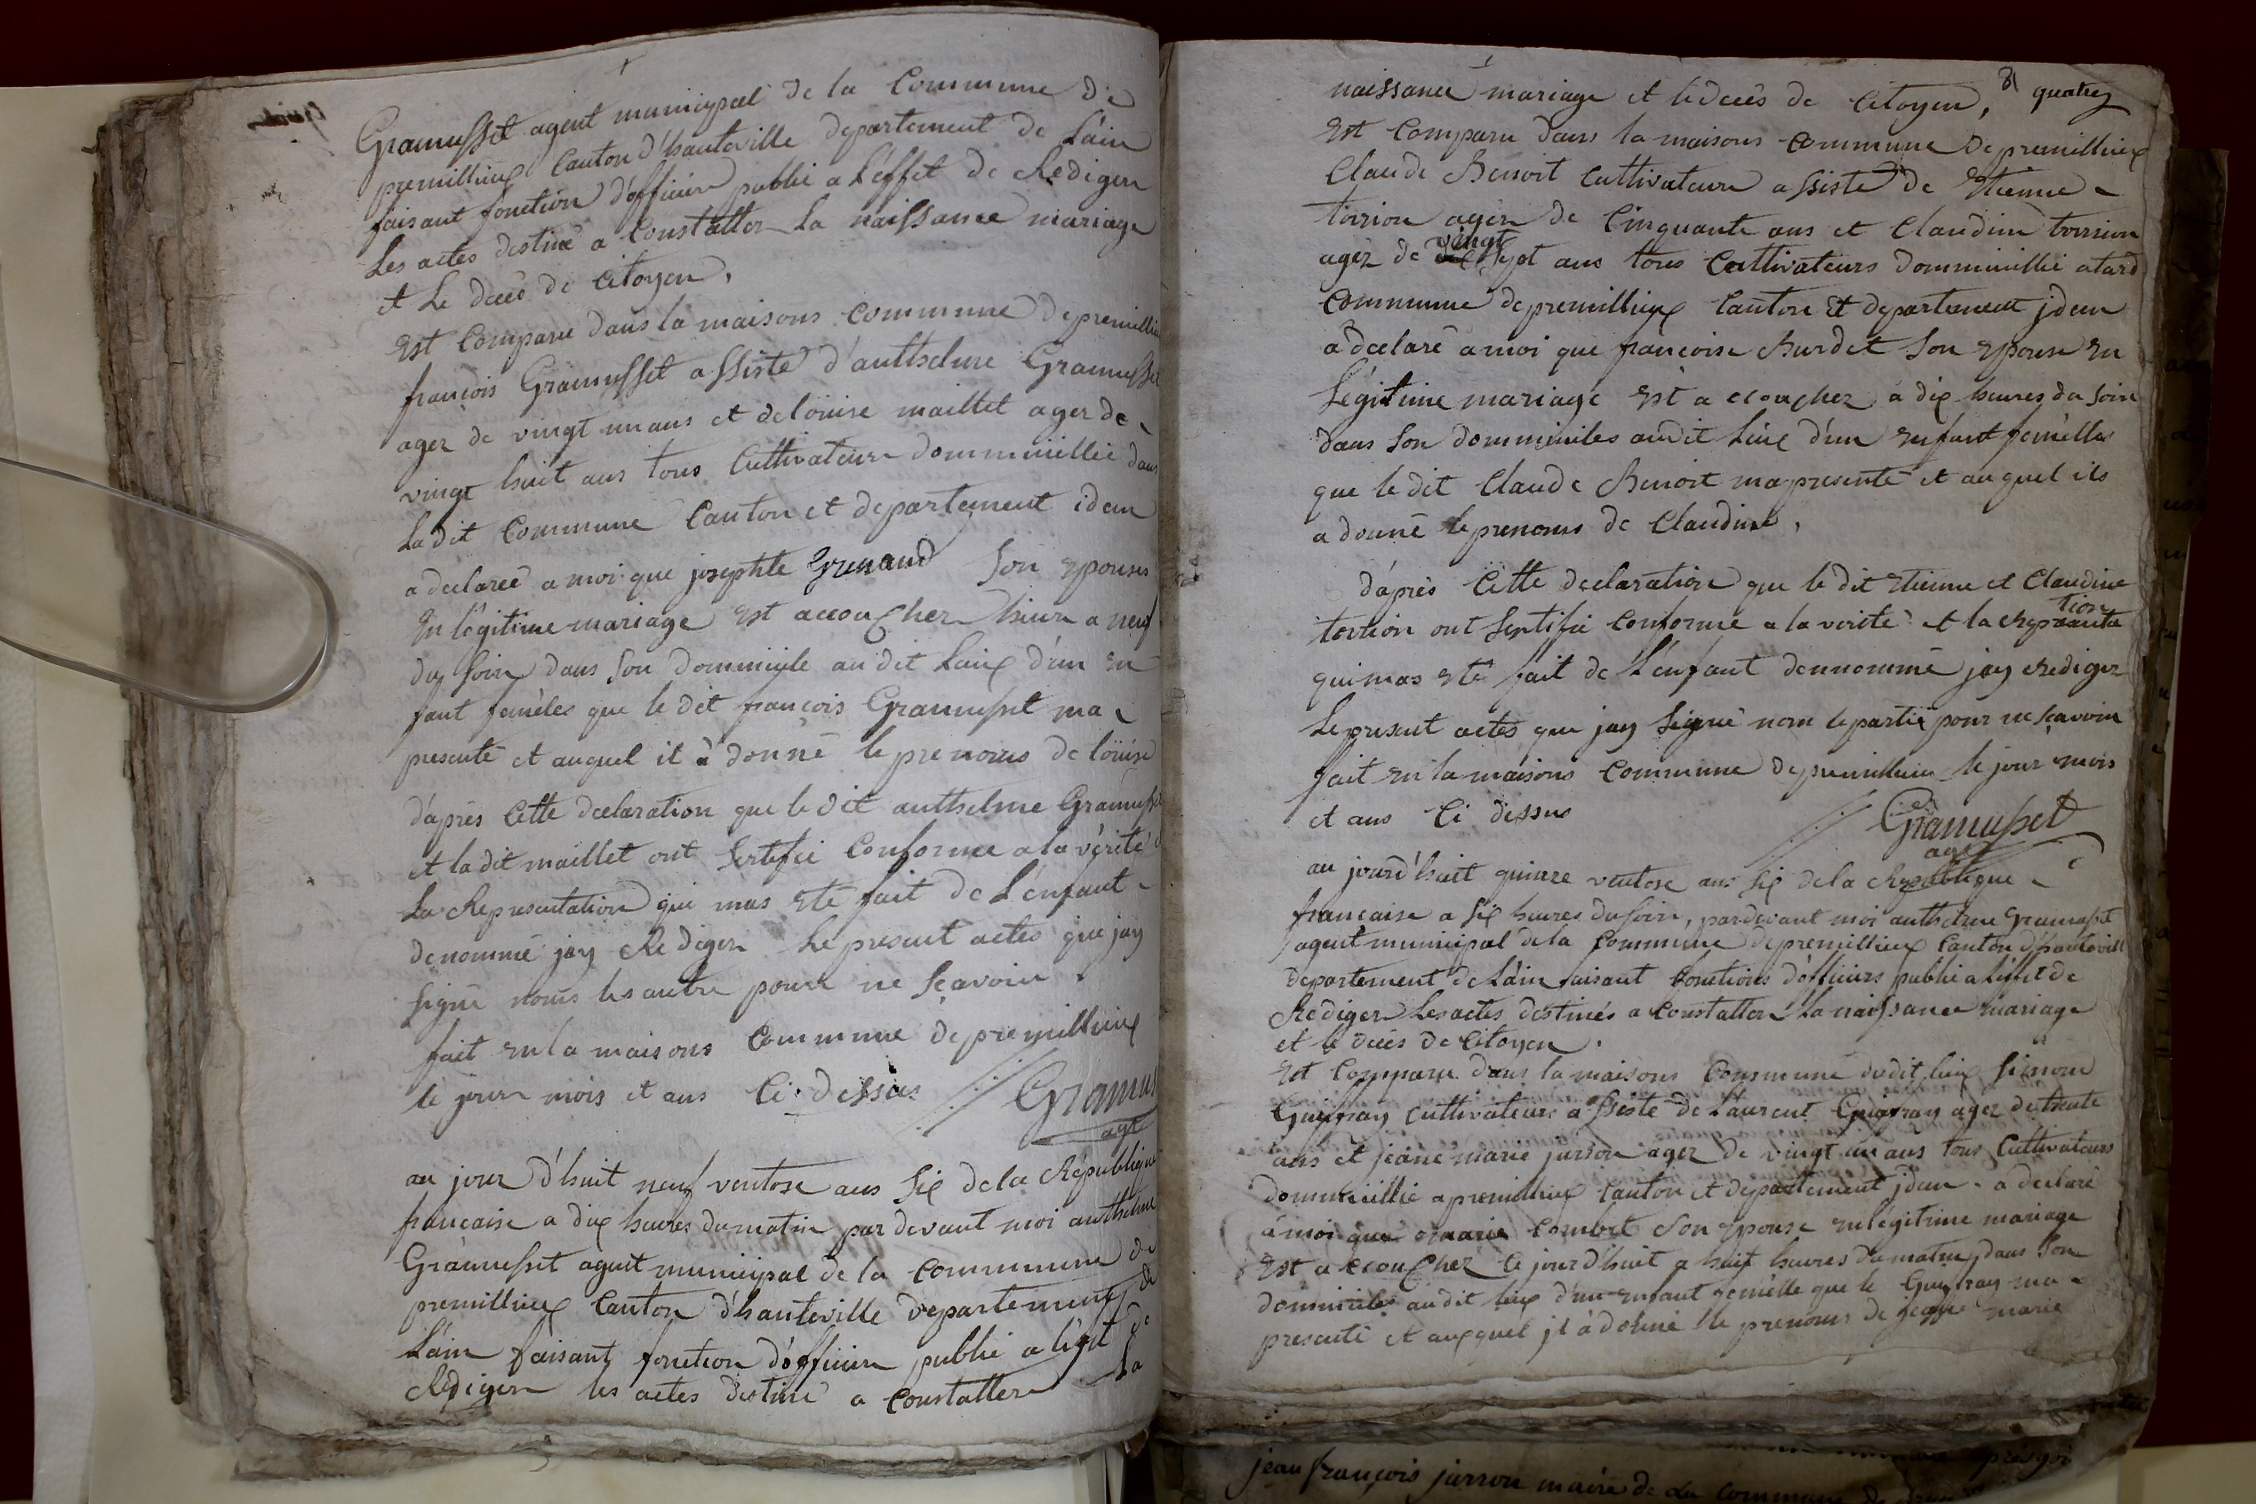 Gramusset agent municipal de la Commune de
premillieux Canton d'hauteville departement de L'ain
faisant fonction d'officier public a L'effet de Rediger
Les actes destiné a Constatter La naissance mariage
et Le decés de Citoyen,
Est Comparu dans la maisons commune de premillieu
françois Gramusset assisté d'anthelme Gramusset
ager de vingt un ans et de loüise maillet ager de
vingt huit ans tous Cultivateur domminillié dans
La dit Commune Canton et departement idem
a declareé a moi que josephte Grenaud Son epouses
En légitime mariage est accoucher hier a neuf
du soir dans Son dominyle au dit Lieux d'un en
fant femeles que le dit françois Gramusset ma
presenté et auquel il à donné le prenoms de loüise
d'aprés Cette declaration que le dit anthelme Gramusset
et la dit maillet ont Sertifié Conforme a la vérité et
La Representation qui mas eté fait de L'enfant
denommé jay Rediger Le present actes que jay
Signé noms les autre pour ne Sçavoir.
fait en la maisons Commune de premillieux
le jour mois et ans Ci-dessus Gramus
agt
au jour d'huit neuf ventose ans Six de la République
francaise a dix heures du matin par devant moi anthelme
Gramusset agent municipal de la Commune de
premillieux Canton d'hauteville departement de
L'ain faisant fonction d'officier public a l'éfet de
Rediger les actes destiné a Constatter La
quatre
naissance mariage et le decés de Citoyen,
Est Comparu dans la maisons Commune de premillieux
Claude Benoit Cultivateur assisté de Etienne
torrion ager de Cinquante ans et Claudine torrion
vingt
agér de sept ans tous Cultivateurs domminillié a tard
Commune de premillieux Canton Et departement jdem
a declaré a moi que francoise Burdet Son epouse En
Légitime mariage Est a ccoucher a dix heures du soir
dans Son domminiles audit Lieux d'un enfant femelles
que le dit Claude Benoit ma presenté et auquel ils
a donné le prenoms de Claudine,
d'aprés Cette declaration que le dit Etienne et Claudine
tion
torrion ont Sertifié Conforme a la verité et la Represanta
qui mas eté fait de L'enfant dennommé jay Rediger
Le present actes que jay Signé nom le partié pour ne scavoir
fait en la maisons Commune de premillieu le jour mois
et ans Ci dessus Gramusset
agt
au jourd'huit quinze ventose ans Six de la Republique
française a Six heures du soir, pardevant moi anthelme Gramusset
agent municipal de la Commune de premillieux Canton d'hautevill
departement de L'ain faisant fonctions d'officiers public a L'effet de
Rediger Les actes destinés a Constatter La naissance mariage
et le decés de Citoyen.
Est Comparu dans la maisons Commune dudit lieux Simon
Guiffray cultivateurs assisté de Laurent Guiffray âgez de trente
ans et jeane marie jurron agez de vingt un ans tous Cultivateurs
domminillié a premillieux Canton et departement jdem a declaré
a moi que marie Combet Son epouse en légitime mariage
Est a ccoucher Ce jourd'huit a huit heures du matin dans Son
dominiles au dit lieux d'un enfant femelle que le Guiffray ma
presenté et auxquel jl à donné le prenoms de jeane marie
jean françois jurron maire de La Commune de